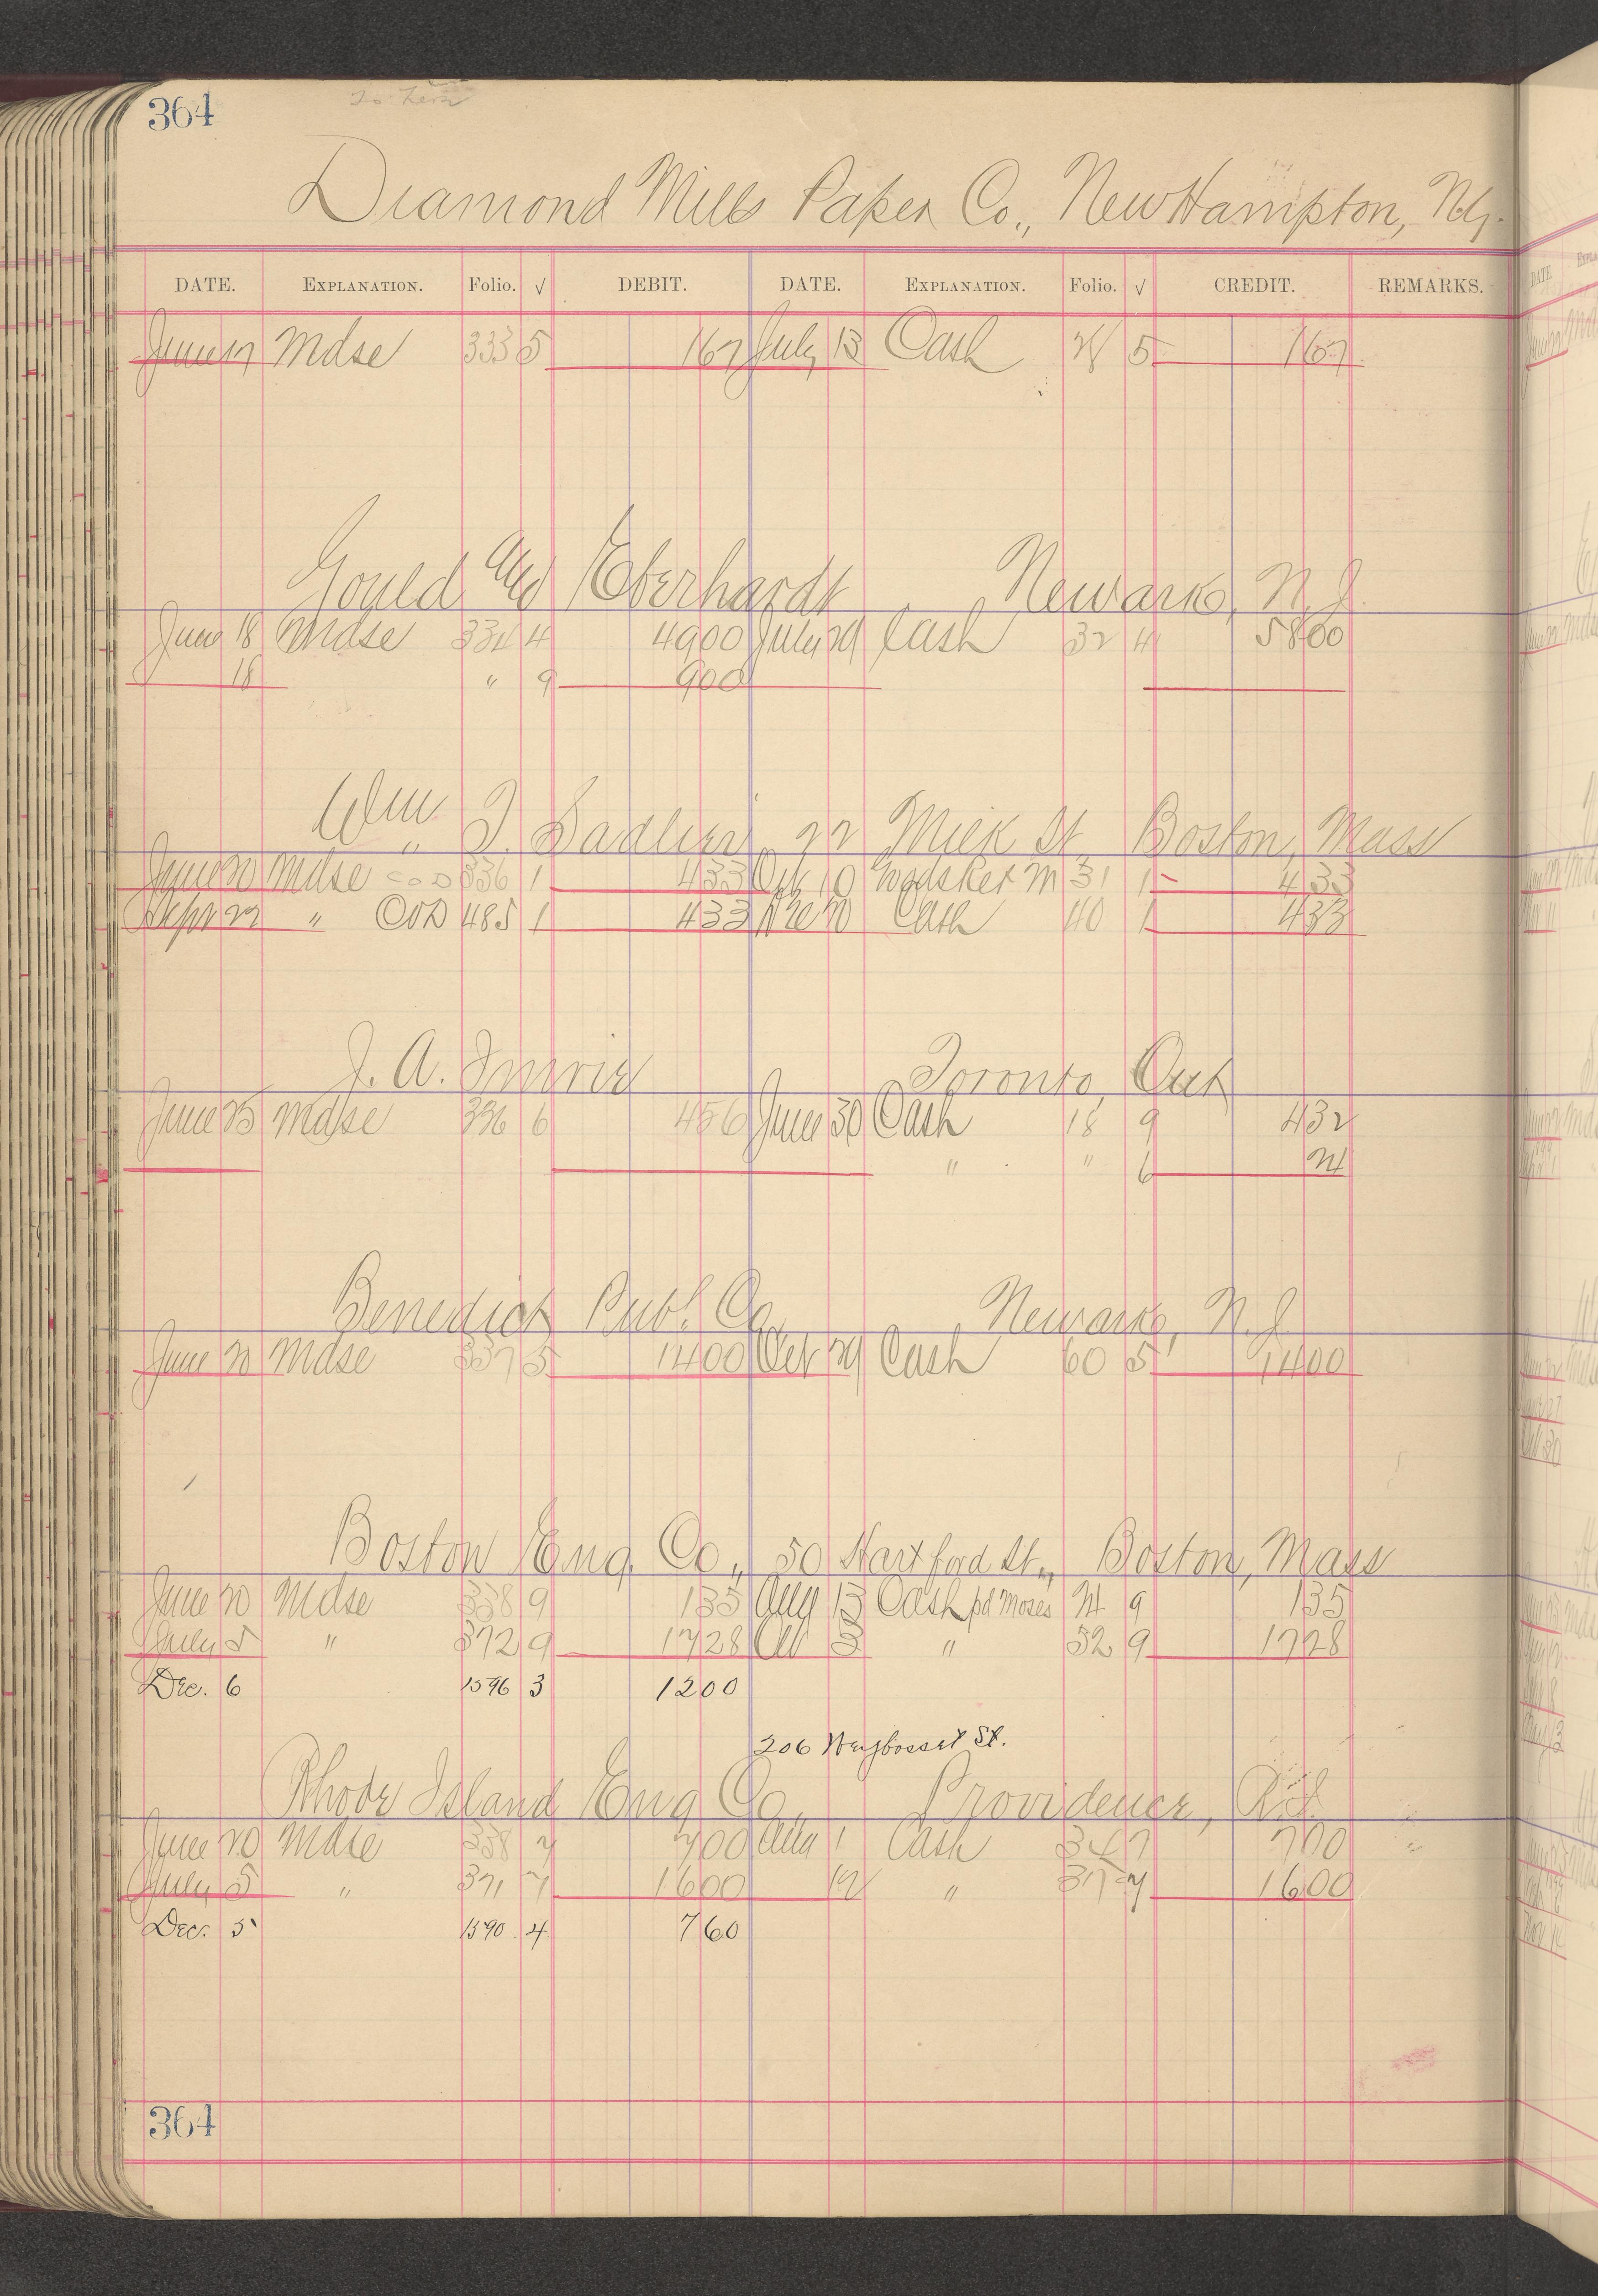 364
Diamond Mills Paper Co., New Hampton, N.J.
DATE. EXPLANATION. Folio. √ DEBIT. DATE. EXPLANATION. Folio. √ CREDIT. REMARKS.
June 17 Mdse 333 5 167 July 13 Cash 28 5 167
Gould and Eberhardt Newark, N.J.
June 18 Mdse 334 4 4900 July 29 Cash 32 4 5800
18 " 9 900
Wm J. Sadlier 22 Milk St. Boston, Mass
June 20 Mdse COD 336 1 433 Oct 10 31 1 433
Sept 22 " COD 485 1 433 Cash 40 1 433
J. A. Imrie Toronto, Ont
June 25 Mdse 336 6 456 June 30 Cash 18 9 432
" " 6 24
Benedict Publ. Co. Newark, N.J.
June 20 Mdse 337 5 1400 Oct 29 Cash 60 5 1400
Boston Eng. Co., 50 Hartford St., Boston, Mass
June 20 Mdse 338 9 135 Aug 13 Cash pd Moses 24 9 135
July 5 " 372 9 1728 Oct 3 " 52 9 1728
Dec. 6 1596 3 1200
206 Weybosset St.
Rhode Island Eng Co. Providence, R.I.
June 20 Mdse 338 7 700 Aug 1 Cash 34 7 700
July 5 " 371 7 1600 12 " 37 7 1600
Dec. 5 1590 4 760
364